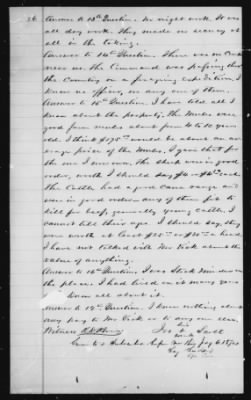 26 Answer to 13th Question. No night work. It was
all day work. They made no secrecy at
all in the taking.
Answer to 14th Question. There was no Camp
near us. The Command was passing through
the Country on a foraging expedition. I
know no officer, in any one of them.
Answer to 15th Question. I have told all I
know about the property. The Mules were
good farm mules about from 4 to 10 years
old. I think $175.00 would be about an av-
erage price of the Mules. I gave that for
the one I own now. The sheep were in good
order, worth I should say $4 each.
The Cattle had a good cane range and
were in good order any of them fit to
kill for beef, generally young cattle. I
cannot tell their age. I should say, they
were worth at least a head.
I have not talked with Mr. about the
value of anything.
Answer to 16th Question. I was Stock Minder on
the place. I had lived on it many years
know all about it.
Answer to 17th Question. I know nothing about
any pay to Mr. or to any one else.
Witness his
Jno X Scott
mark
Sworn to & Subscribed before me this